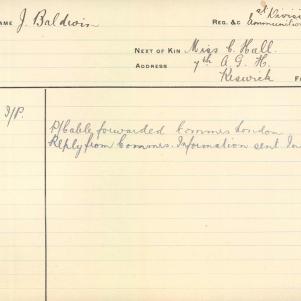 AME J. Baldwin
REG. &C
st Divisi
Ammunition
NEXT OF KIN Miss C. Hall.
ADDRESS 7th A. G. H.
Keswick
F
I/P.
D/Cable forwarded Commrs London
Reply from Commrs. Information sent. In